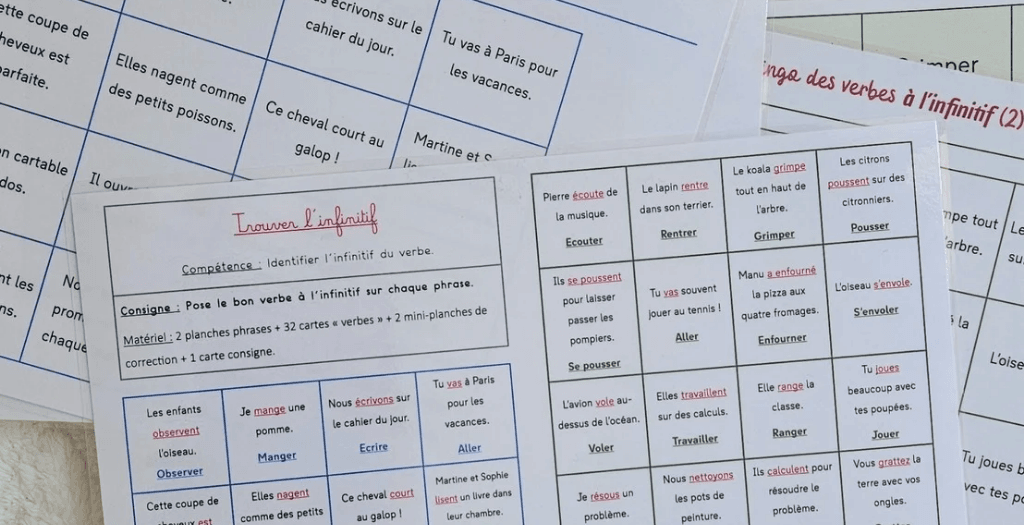 ette coupe de
heveux est
arfaite.
Elles nagent comme
des petits poissons.
écrivons sur le
cahier du jour.
Tu vas à Paris pour
les vacances.
Ce cheval court au
galop !
Martine et
n cartable
dos.
Il
nt les
ns.
prom
chaque
Grimper
ingo des verbes à l'infinitif (2)
mpe tout
arbre.
Le
su
la
L'oise
Tu joues b
vec tes po
Trouver l'infinitif
Compétence : Identifier l'infinitif du verbe.
Consigne : Pose le bon verbe à l'infinitif sur chaque phrase.
Matériel : 2 planches phrases + 32 cartes « verbes » + 2 mini-planches de
correction + 1 carte consigne.
Les enfants
observent
l'oiseau.
Observer
Je mange une
pomme.
Manger
Nous écrivons sur
le cahier du jour.
Ecrire
Tu vas à Paris
pour les
vacances.
Aller
Cette coupe de
cheveux est
Elles nagent
comme des petits
Ce cheval court
au galop !
Martine et Sophie
lisent un livre dans
leur chambre.
Pierre écoute de
la musique.
Ecouter
Le lapin rentre
dans son terrier.
Rentrer
Le koala grimpe
tout en haut de
l'arbre.
Grimper
Les citrons
poussent sur des
citronniers.
Pousser
Ils se poussent
pour laisser
passer les
pompiers.
Se pousser
Tu vas souvent
jouer au tennis !
Aller
Manu a enfourné
la pizza aux
quatre fromages.
Enfourner
L'oiseau s'envole.
S'envoler
L'avion vole au-
dessus de l'océan.
Voler
Elles travaillent
sur des calculs.
Travailler
Elle range la
classe.
Ranger
Tu joues
beaucoup avec
tes poupées.
Jouer
Je résous un
problème.
Nous nettoyons
les pots de
peinture.
Ils calculent pour
résoudre le
problème.
Vous grattez la
terre avec vos
ongles.